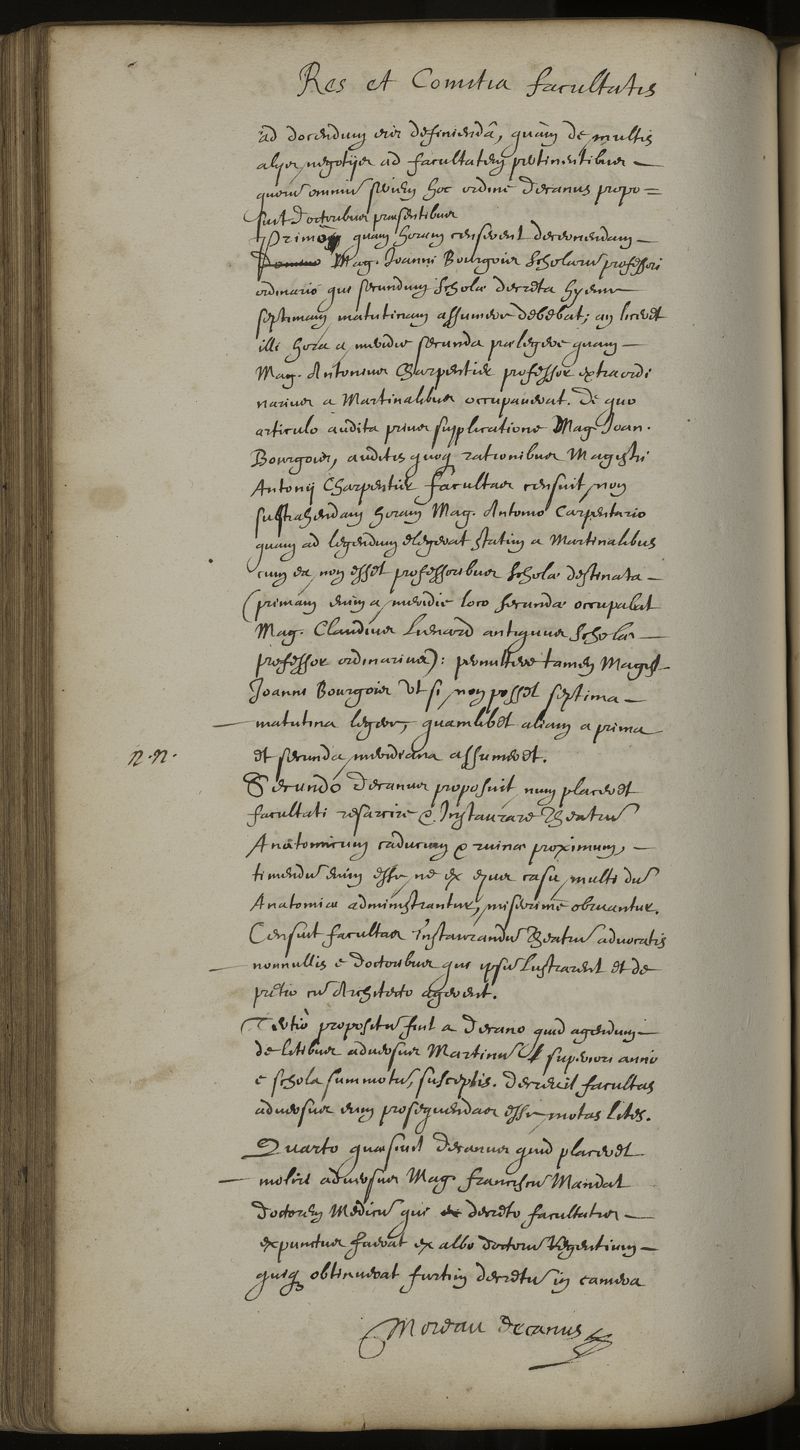 Res et Comitia facultatis
ad docendum eius definiendâ, quàm de multis
alijs negotijs ad facultatem pertinentibus —
quorū omniū seriem hoc ordine decanus propo=
suit doctoribus praesentibus
Primò quam horam censerent decernendam —
Mag. Joanni Bourgois scholarū professori
ordinario qui secundum scholae decreta hyeme
septimam matutinam assumere debebat; an liceret
illi hora a meridie secunda praelegere quam —
Mag. Antonius Charpentier professor extraordi
narius a Martinalibus occupauerat. De quo
articulo audita prius supplicatione Mag. Joan.
Bourgois, auditis quoq rationibus Magistri
Antonij Charpentier facultas censuit non
subtrahendam horam Mag. Antonio Carpentario
quam ad legendum elegerat statim a Martinalibus
cum ea non esset professoribus scholae destinata —
(primam enim a meridie loco secundae occupabat
Mag. Claudius Lienard antiquus scholae —
professor ordinarius): permittere tamen Magist.
Joanni Bourgois Vt si non posset septima —
matutina legere, quamlibet aliam a prima
n.n. et secunda meridiana assumeret.
Secundò decanus proposuit num placeret
facultati resarcire & Instaurare Theatrū
Anatomicum caducum & ruinae proximum, —
timendū enim esse ne ex eius casu multi dū
Anatomiae administrantur, miserrime obruantur.
Censuit facultas instaurandū Theatrū aduocatis
nonnullis e doctoribus qui ipsū lustrarent et de
pretio cū Architecto agerent.
Tertiò propositū fuit a Decano quid agendum —
de litibus aduersus Martinū superiori anno
e schola summotū, susceptis. decreuit facultas
aduersus eum prosequendas esse motas lites.
Quarto quaesiuit decanus quid placeret
moliri aduersus Mag. Franciscū Mandat
doctorem Medicū qui decreto facultatis —
expunctus fuerat ex albo doctorū Regentium —
quiq obtinuerat furtim decretū in camera
Moreau decanus